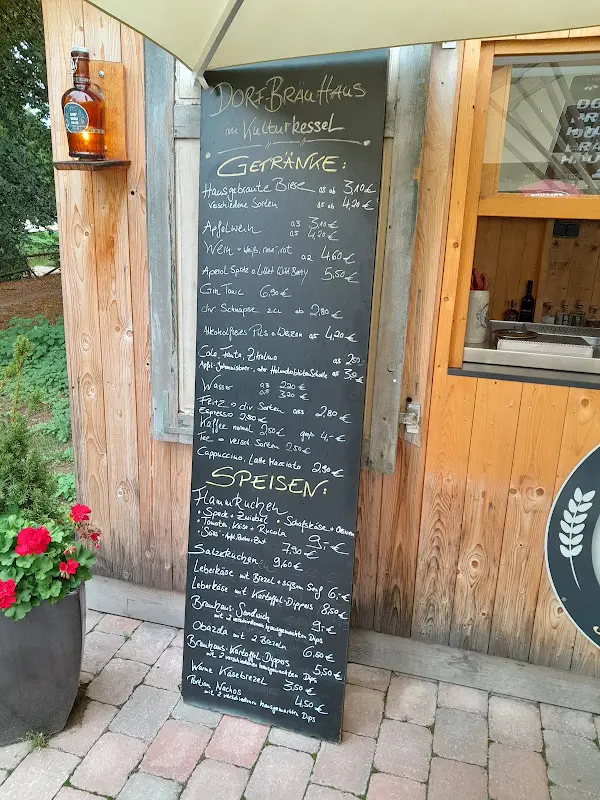 DORF-BRÄUHAUS
im Kulturkessel
GETRÄNKE:
Hausgebraute Biere 0,3 ab 3,10€
verschiedene Sorten 0,5 ab 4,20€
Apfelwein 0,3 3,10€
0,5 4,20€
Wein - weiß, rosé, rot 0,2 4,60€
Aperol Spritz o. Lillet Wild Berry 5,50€
Gin Tonic 6,90€
div. Schnäpse 2cl ab 2,80€
Alkoholfreies Pils o. Weizen 0,5 4,20€
Cola, Fanta, Zitralimo 0,3
Apfel-, Johannisbeer-, oder Holunderblütenschorle 0,5
Wasser 0,3 2,20€
0,5 3,20€
FRITZ div. Sorten 0,33 2,80€
Espresso 2,80€
Kaffee normal 2,50€ groß 4,-€
Tee versch. Sorten 2,50€
Cappuccino, Latte Macciato 2,90€
SPEISEN:
Flammkuchen
• Speck + Zwiebel • Schafskäse + Oliven
• Tomaten, Käse + Rucola 9,-€
• Süss: 7,90€
Salzekuchen 9,60€
Leberkäse mit Brezel + süßem Senf 6,-€
Leberkäse mit Kartoffel-Dippers 8,50€
Brauhaus Sandwich 9,-€
mit 2 verschiedenen hausgemachten Dips
Obazda mit 2 Brezeln 6,50€
Brauhaus-Kartoffel-Dippers 5,50€
mit 2 verschiedenen hausgemachten Dips
Warme Käsebrezel 3,50€
Portion Nachos 4,50€
mit 2 verschiedenen hausgemachten Dips